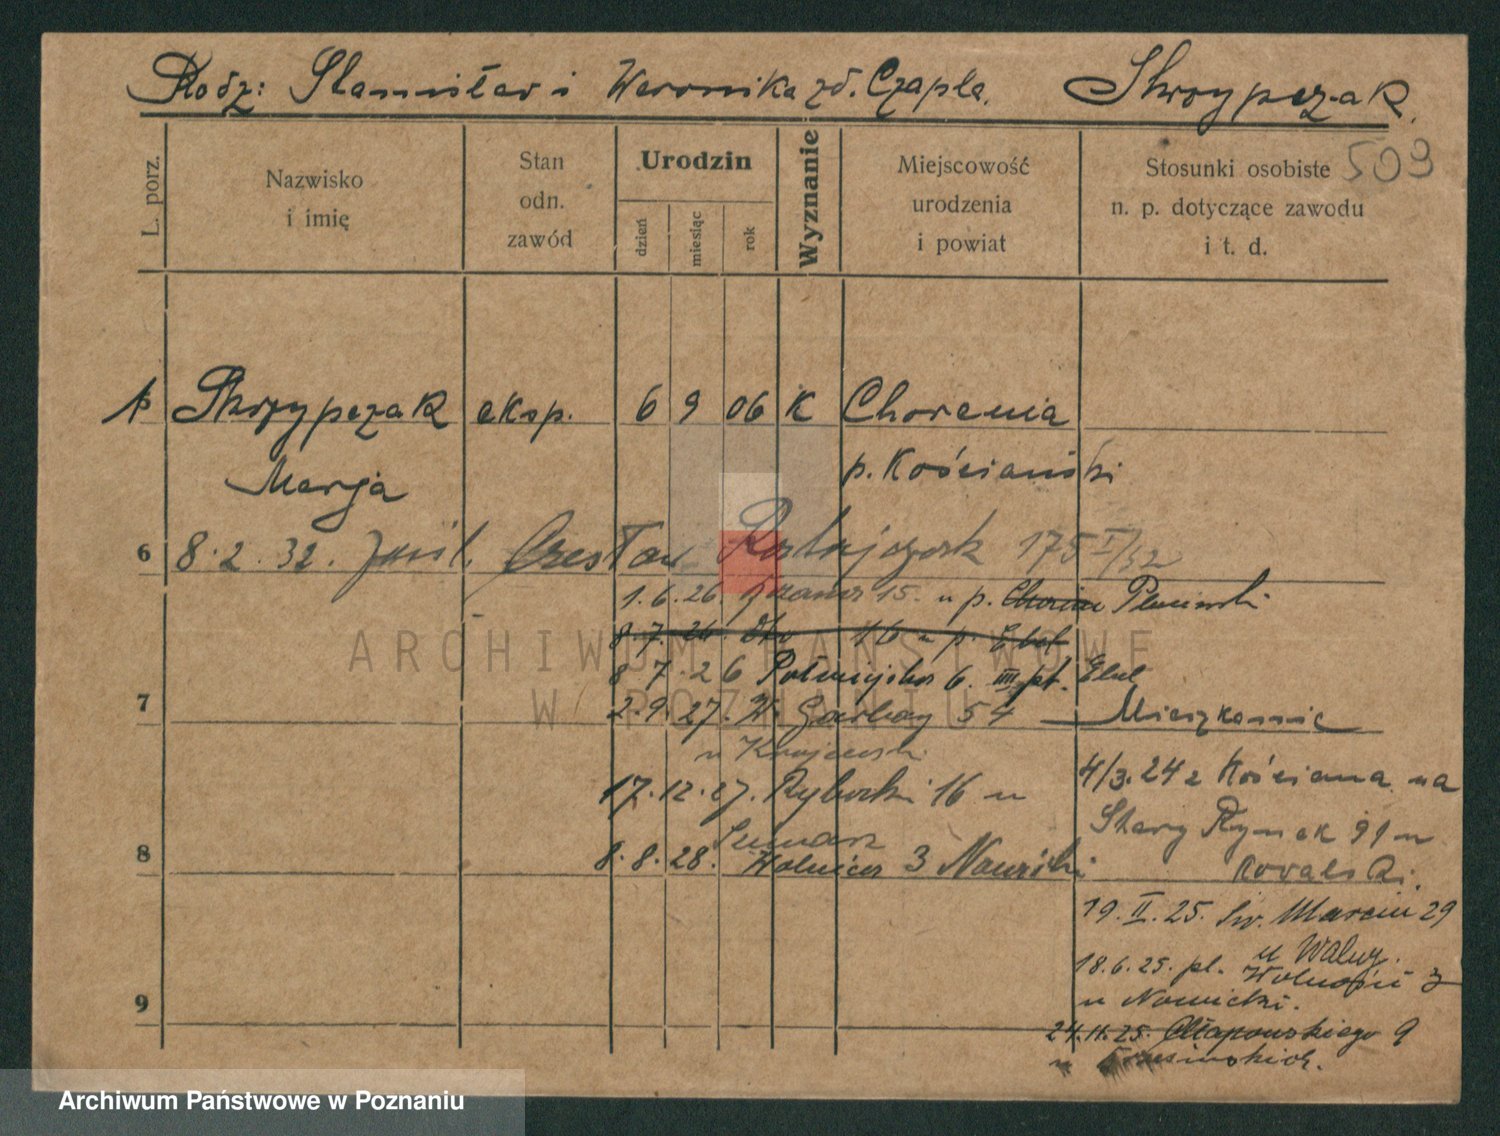 Rodz: Stanisław i Weronika zd. Czapla. Skrzypczak.
509
L. porz.
Nazwisko
i imię
Stan
odn.
zawód
Urodzin
dzień
miesiąc
rok
Wyznanie
Miejscowość
urodzenia
i powiat
Stosunki osobiste
n. p. dotyczące zawodu
i t. d.
1 Skrzypczak eksp. 6 9 06 K Chorenia
Marja p. Kościański
6 8.2.32. Czesław Ratajczak 175 I/32
1.6.26. 15. u p.
8.7. 16 u p. Ebel
8 7.26 Półwiejska 6. III pt. Ebel
7 2.9.27. W. Garbary 54 Mieszkanie
u Krajewski
17.12.27. Rybaki 16 u
4/3.24 z Kościana na
Stary Rynek 91 u
Kowalski.
8 8.8.28. Wolności 3 Nowicki
19.II.25. Św. Marcin 29
u
18.6.25. pl. Wolności 3
u Nowicki.
9
24.11.25. Chłapowskiego 9
u
ARCHIWUM PAŃSTWOWE
W POZNANIU
Archiwum Państwowe w Poznaniu